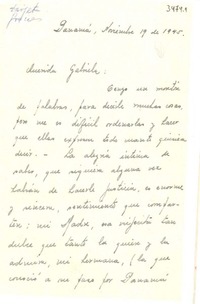 34791
Panamá, Noviembre 19 de 1945.
Querida Gabriela:
Tengo un montón
de palabras, para decirle muchas cosas,
pero me es difícil ordenarlas y hacer
que ellas expresen todo cuanto quisiera
decir. - La alegría intensa de
saber, que siquiera alguna vez
habían de hacerle justicia, es enorme
y sincera, sentimiento que compar-
ten: mi Madre, una viejecita tan
dulce que tanto la quiere y la
admira, mi hermana, (la que
conoció a su paso por Panamá